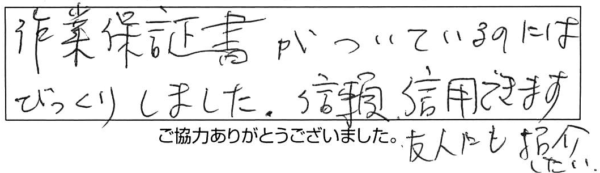 作業保証書がついているのには
びっくりしました。信頼、信用できます
ご協力ありがとうございました。友人にも紹介
したい。